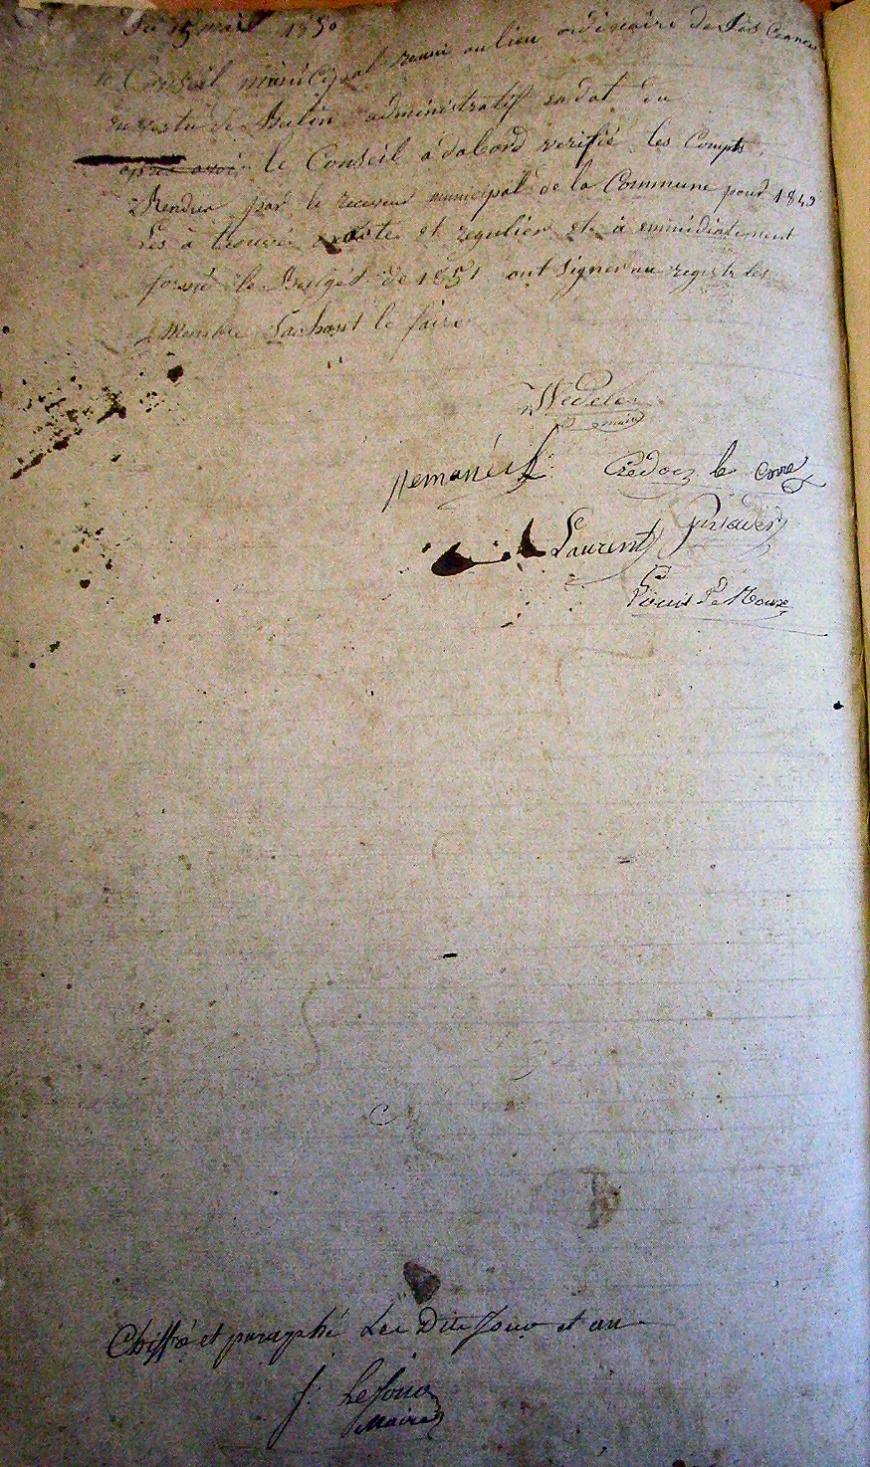 Du 15 mai 1850
le Conseil municipal reuni au lieu ordinaire de Ses Ceances
en vertu de Buletin administratif en dat du
après avoir le Conseil a dabord verifié les Compts
Rendus par le receveur municipal de la Commune pour 1849
Les à trouvé et regulier et à emmidiatement
formé le Budget de 1851 ont Signer au registr les
Membre Sachant le faire
maire
Hemonéry Crédoez le corre
Laurent
Louis Le Roux
Chiffré et paragphé Les Dite Jour et an
J. Le Jour
Maire